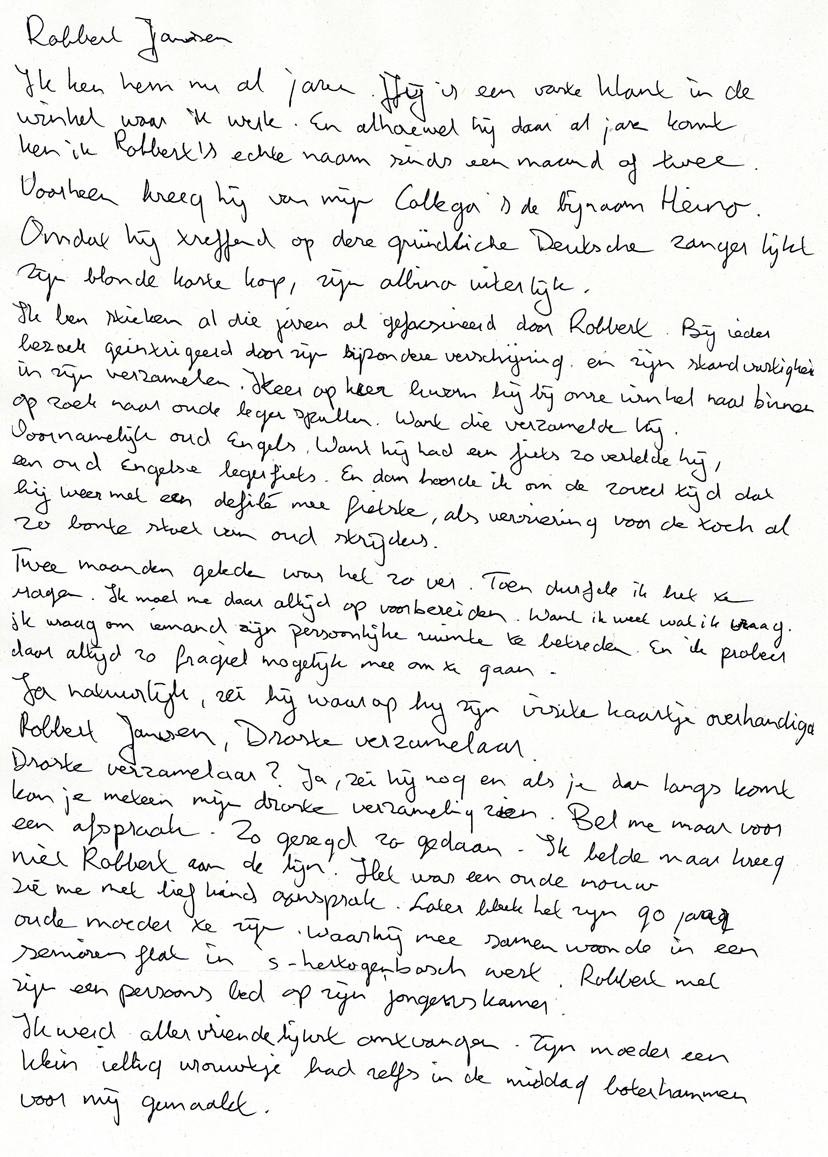 Robbert Janssen
Ik ken hem nu al jaren. Hij is een vaste klant in de
winkel waar ik werk. En alhoewel hij daar al jaren komt
ken ik Robbert's echte naam sinds een maand of twee.
Voorheen kreeg hij van mijn Collega's de bijnaam Heino.
Omdat hij treffend op deze gründliche Deutsche zanger lijkt
zijn blonde korte kop, zijn albino uiterlijk.
Ik ben stiekem al die jaren al gefascineerd door Robbert. Bij ieder
bezoek geintrigeerd door zijn bijzondere verschijning. en zijn standvastigheid
in zijn verzamelen. Keer op keer kwam hij bij onze winkel naar binnen
op zoek naar oude leger spullen. Want die verzamelde hij.
Voornamelijk oud Engels. Want hij had een fiets zo vertelde hij,
een oud Engelse legerfiets. En dan hoorde ik om de zoveel tijd dat
hij weer met een defilé mee fietste, als versiering voor de toch al
zo bonte stoet van oud strijders.
Twee maanden geleden was het zo ver. Toen durfde ik het te
vragen. Ik moet me daar altijd op voorbereiden. Want ik weet wat ik vraag.
ik vraag om iemand zijn persoonlijke ruimte te betreden. En ik probeer
daar altijd zo fragiel mogelijk mee om te gaan.
Ja natuurlijk, zei hij waarop hij zijn visite kaartje overhandigd
Robbert Janssen, Droste verzamelaar.
Droste verzamelaar? Ja, zei hij nog en als je dan langs komt
kan je meteen mijn droste verzameling zien. Bel me maar voor
een afspraak. Zo gezegd zo gedaan. Ik belde maar kreeg
niet Robbert aan de lijn. Het was een oude vrouw
die me met lief kind aansprak. Later bleek het zijn 90 jarig
oude moeder te zijn. Waarhij mee samen woonde in een
senioren flat in 's-hertogenbosch west. Robbert met
zijn een persoons bed op zijn jongenskamer.
Ik werd allervriendelijkst ontvangen. Zijn moeder een
klein ieltig vrouwtje had zelfs in de middag boterhammen
voor mij gemaakt.